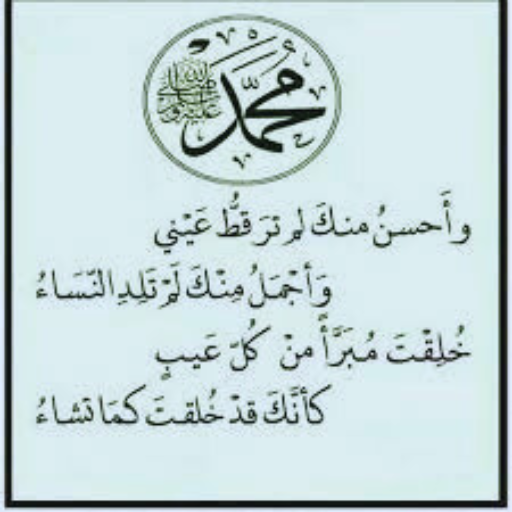 محمد صلى الله عليه وسلم
وأَحسنُ منكَ لم ترَ قطُّ عَيْني
وَأجْمَلُ مِنْكَ لَمْ تَلِدِ النّسَاءُ
خُلِقْتَ مُبَرَّأً منْ كُلّ عَيبٍ
كأنَّكَ قدْ خُلقتَ كمَا تشاءُ